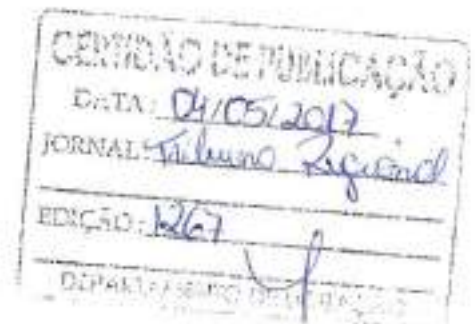 CERTIDÃO DE PUBLICAÇÃO
DATA: 04/05/2017
JORNAL: Tribuna Regional
EDIÇÃO: 1267
DEPARTAMENTO DE